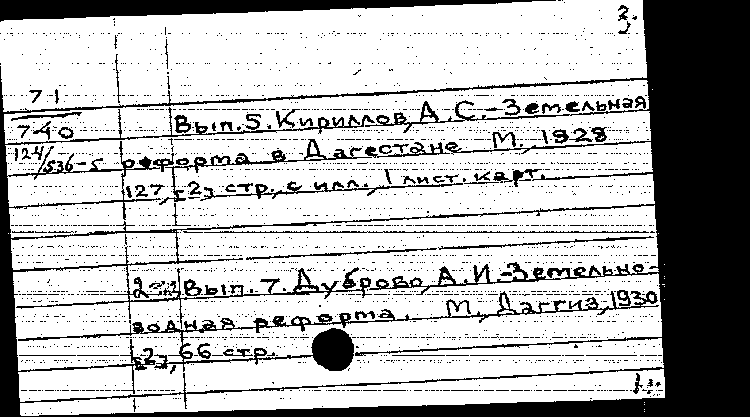 3.
71
740 Вып. 5. Кириллов, А. С. - Земельная
124/536-5 реформа в Дагестане М., 1928
127, [2] стр., с илл., 1 лист. карт.
Вып. 7. Дуброво, А. И. - Земельно-
водная реформа. М., Даггиз, 1930
[2], 66 стр.